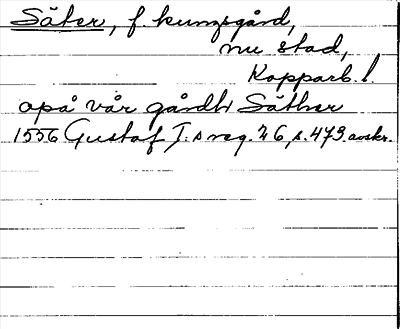 Säter, f. kungsgård,
nu stad,
Kopparb. l.
opå vår gårdh Säther
1556 Gustaf I:s reg. 26, s. 473. avskr.